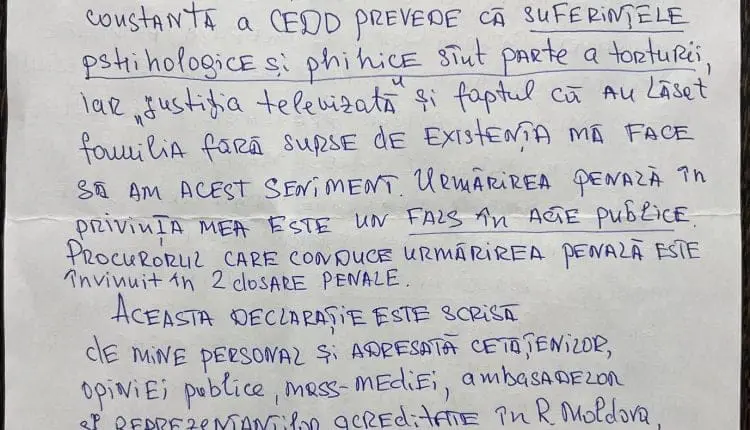 constantă a CEDO PREVEDE CĂ SUFERINȚELE
pstihologice și phihice sînt parte a torturii,
iar „justiția televizată” și faptul că AU Lăset
familia fără surse de EXISTENȚA MĂ FACE
să am acest seniment. URMĂRIREA PENALĂ în
PRIVINȚA MEA ESTE UN FALS în Acte publice.
PROCURORUL CARE CONDUCE URMĂRIREA PENALĂ ESTE
învinuit în 2 dosare PENALE.
ACEASTA DECLARAȚIE ESTE SCRISĂ
de mine personal și ADRESATĂ CETĂȚENILOR,
opiniei publice, mass-mediei, ambasadelor
și REPREZENTANȚILOR acreditate în R. Moldova,